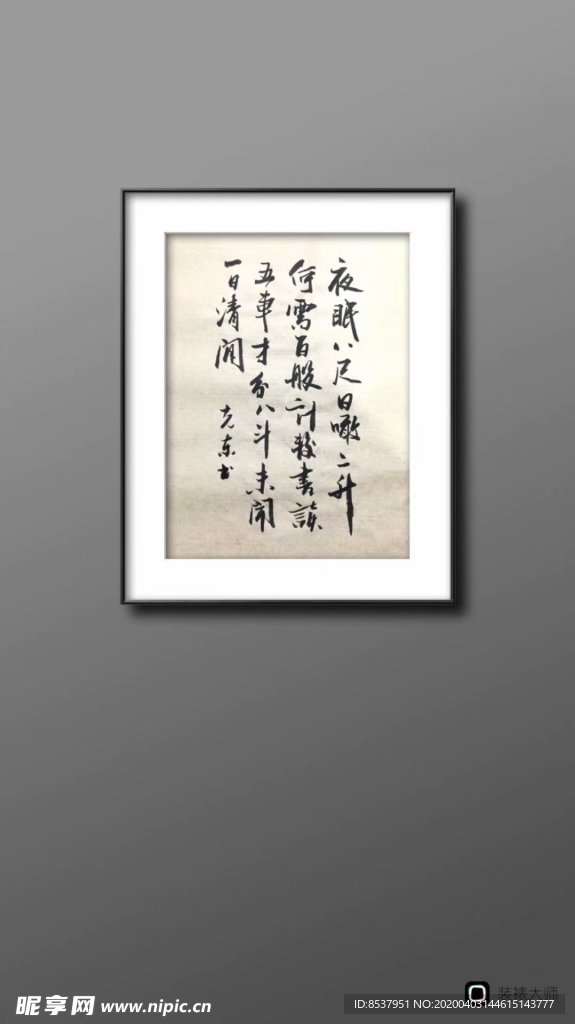 夜眠八尺日噉二升
何需百般计较书读
五车才分八斗未闻
一日清闲
克东书
装裱大师
昵享网 www.nipic.cn
ID:8537951 NO:20200403144615143777